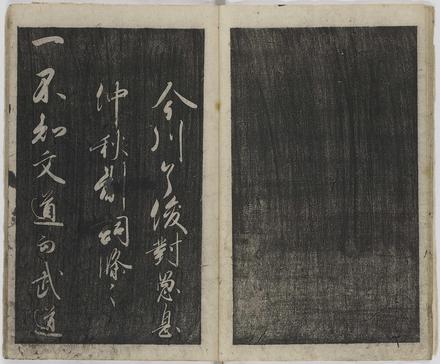 今川了俊對愚息
仲秋制詞條々
一不知文道而武道